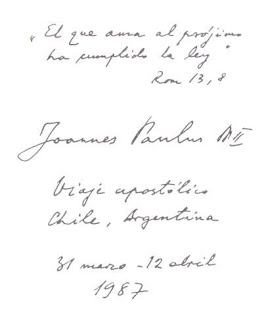 "El que ama al prójimo
ha cumplido la ley"
Rom 13, 8
Joannes Paulus PP II
Viaje apostólico
Chile, Argentina
31 marzo - 12 abril
1987